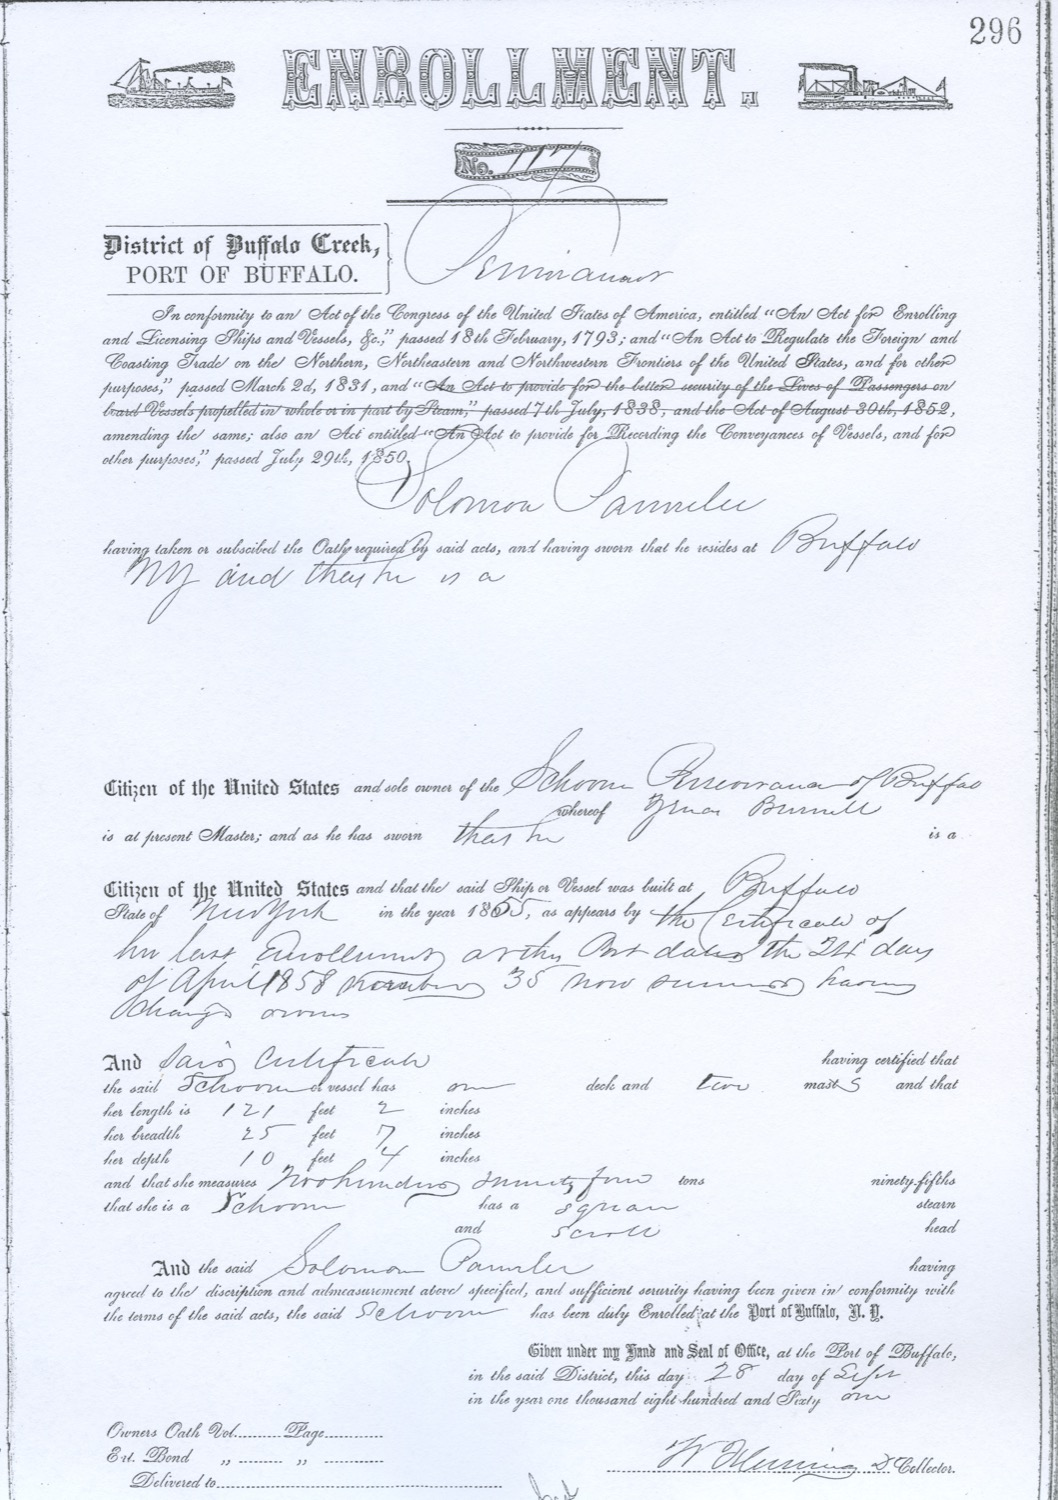 296
ENROLLMENT.
No. 117
District of Buffalo Creek,
PORT OF BUFFALO.
Permanent
In conformity to an Act of the Congress of the United States of America, entitled "An Act for Enrolling
and Licensing Ships and Vessels, &c.," passed 18th February, 1793; and "An Act to Regulate the Foreign and
Coasting Trade on the Northern, Northeastern and Northwestern Frontiers of the United States, and for other
purposes," passed March 2d, 1831, and "An Act to provide for the better security of the Lives of Passengers on
board Vessels propelled in whole or in part by Steam," passed 7th July, 1838, and the Act of August 30th, 1852,
amending the same; also an Act entitled "An Act to provide for Recording the Conveyances of Vessels, and for
other purposes," passed July 29th, 1850,
Solomon Parmelee
having taken or subscibed the Oath required by said acts, and having sworn that he resides at Buffalo
NY and that he is a
Citizen of the United States and sole owner of the Schooner of Buffalo
whereof Burnell
is at present Master; and as he has sworn that he is a
Citizen of the United States and that the said Ship or Vessel was built at Buffalo
State of New York in the year 1855, as appears by the Certificate of
her last Enrollment at this Port dated the 24 day
of April 1858 35 now having
changed owners
And Said Certificate having certified that
the said Schooner vessel has one deck and two masts and that
her length is 121 feet 2 inches
her breadth 25 feet 7 inches
her depth 10 feet 4 inches
and that she measures Two hundred ninety four tons ninety-fifths
that she is a Schooner has a square stearn
and scroll head
And the said Solomon Parmelee having
agreed to the discription and admeasurement above specified, and sufficient security having been given in conformity with
the terms of the said acts, the said Schooner has been duly Enrolled at the Port of Buffalo, N. Y.
Given under my Hand and Seal of Office, at the Port of Buffalo,
in the said District, this day 28 day of Sept
in the year one thousand eight hundred and Sixty one
Owners Oath Vol. Page
Ert. Bond " "
Delivered to
W Fleming D Collector.